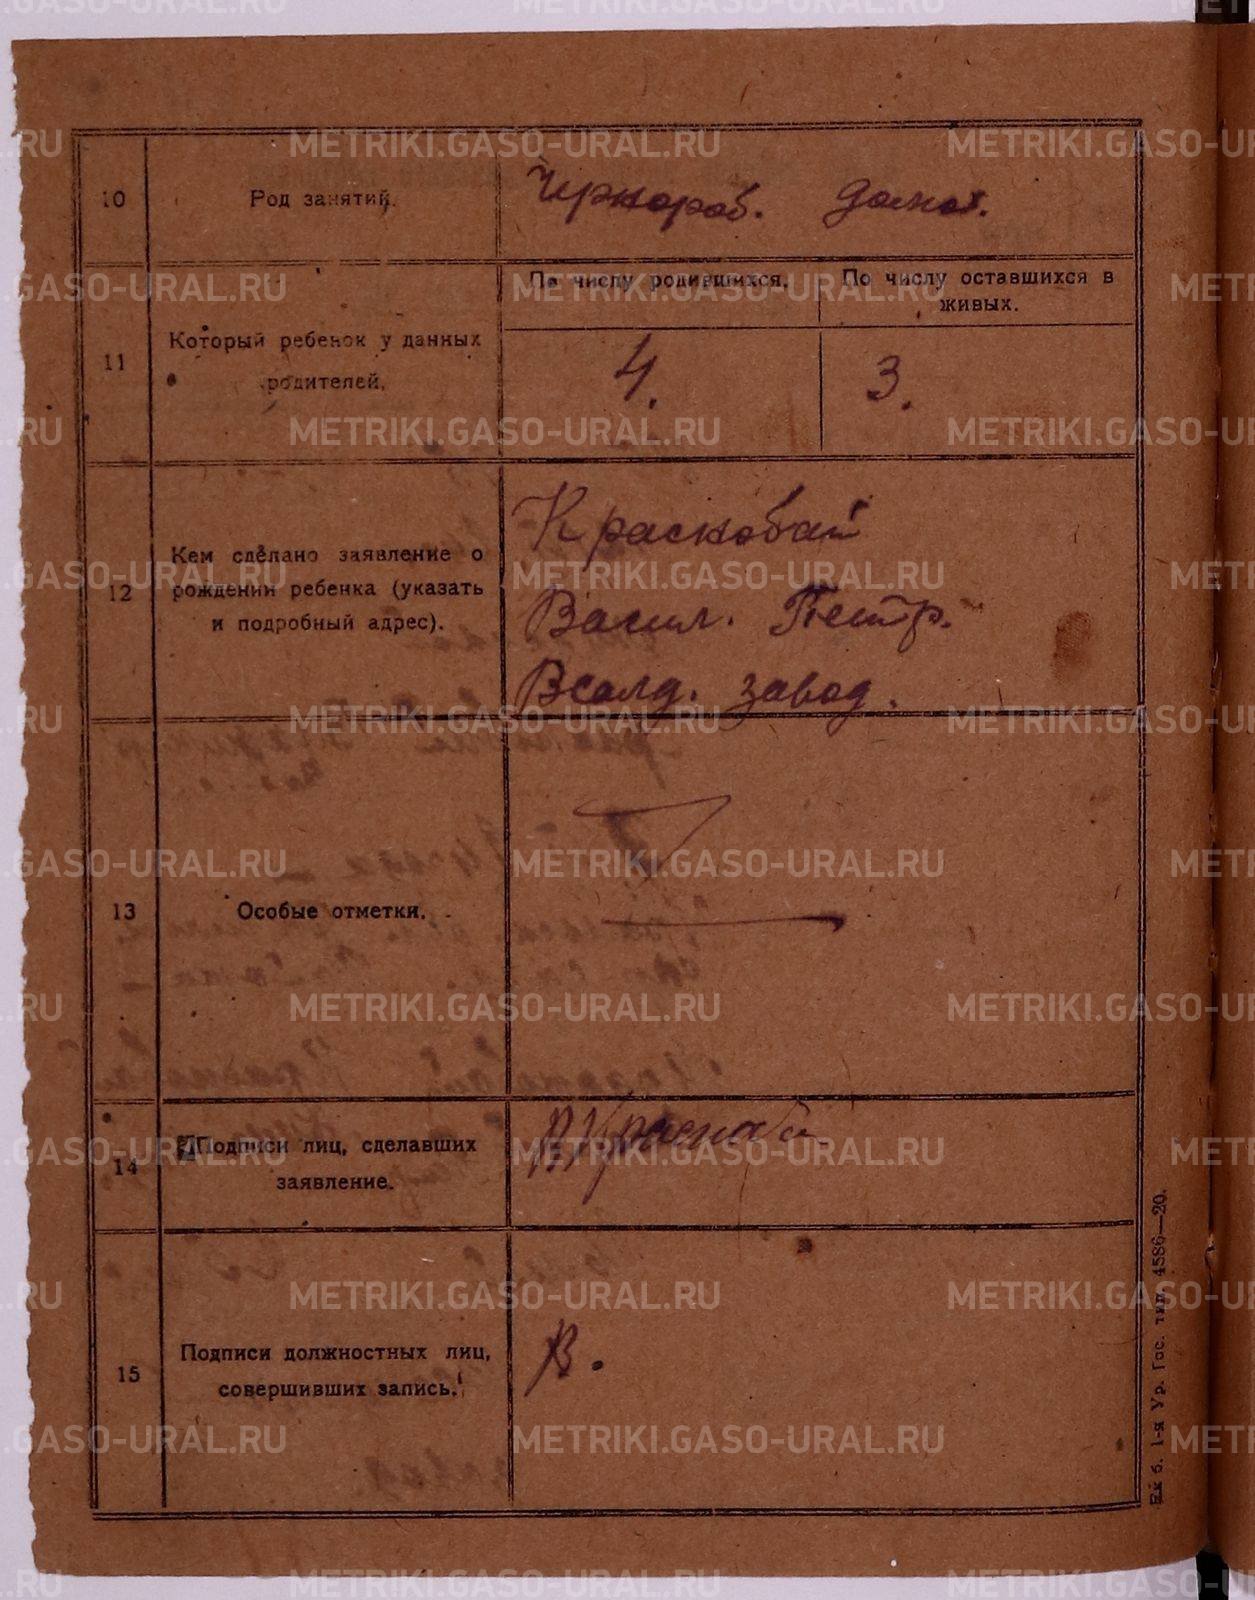 10
Род занятий.
Чернораб. домох.
11
Который ребенок у данных
родителей.
По числу родившихся.
По числу оставшихся в
живых.
4.
3.
12
Кем сделано заявление о
рождении ребенка (указать
и подробный адрес).
Краснобай
Васил. Петр.
Всалд. завод.
13
Особые отметки.
14
Подписи лиц, сделавших
заявление.
В Краснобай
15
Подписи должностных лиц,
совершивших запись.
В.
Ек б. 1-я Ур. Гос. тип. 4586—20.
METRIKI.GASO-URAL.RU